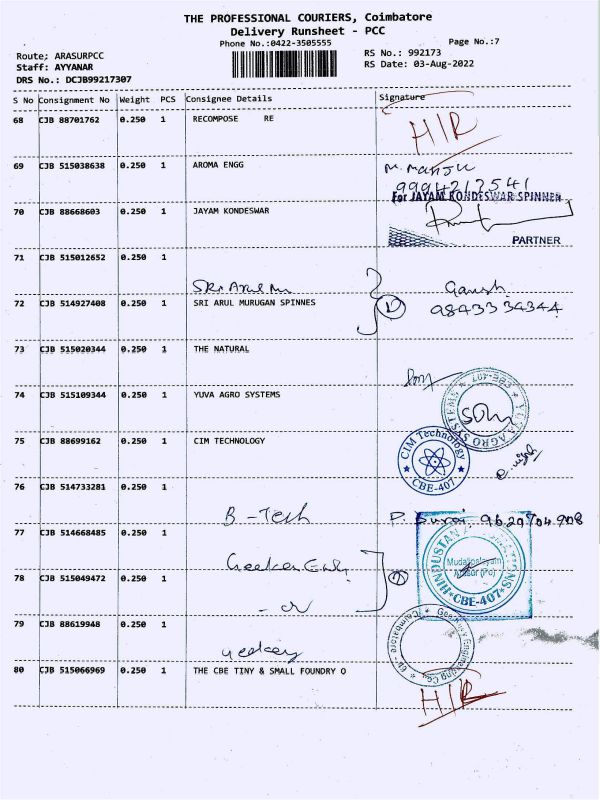 THE PROFESSIONAL COURIERS, Coimbatore
Delivery Runsheet - PCC
Phone No.:0422-3505555
Page No.:7
Route; ARASURPCC
RS No.: 992173
Staff: AYYANAR
RS Date: 03-Aug-2022
DRS No.: DCJB99217307
S No Consignment No Weight PCS Consignee Details Signature
68 CJB 88701762 0.250 1 RECOMPOSE RE
H/R
69 CJB 515038638 0.250 1 AROMA ENGG M. Manju
9994217541
For JAYAM KONDESWAR SPINNER
70 CJB 88668603 0.250 1 JAYAM KONDESWAR
PARTNER
71 CJB 515012652 0.250 1
Sri Arul M
Ganesh
72 CJB 514927408 0.250 1 SRI ARUL MURUGAN SPINNES
9843334344
73 CJB 515020344 0.250 1 THE NATURAL
74 CJB 515109344 0.250 1 YUVA AGRO SYSTEMS
YUVA AGRO SYSTEMS * CBE-407 *
75 CJB 88699162 0.250 1 CIM TECHNOLOGY
CIM Technology
CBE-407
76 CJB 514733281 0.250 1
B-Tech
77 CJB 514668485 0.250 1
Mudalipalayam
Arasur (Po)
CBE-407
78 CJB 515049472 0.250 1
79 CJB 88619948 0.250 1
Geekay
80 CJB 515066969 0.250 1 THE CBE TINY & SMALL FOUNDRY O
H/R